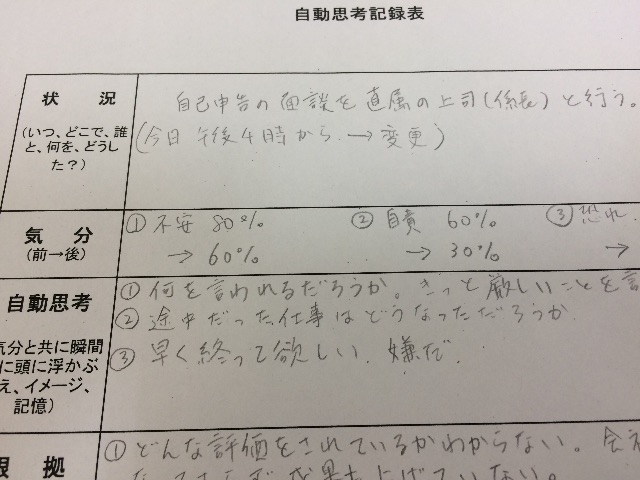 自動思考記録表
状 況
(いつ、どこで、誰
と、何を、どうし
た?)
自己申告の面談を直属の上司(係長)と行う。
(今日 午後4時から → 変更)
気 分
(前→後)
① 不安 80% ② 自責 60% ③ 恐れ
→ 60% → 30% →
自動思考
気分と共に瞬間
に頭に浮かぶ
え、イメージ、
記憶)
① 何を言われるだろうか。きっと厳しいことを言
② 途中だった仕事はどうなっただろうか
③ 早く終って欲しい。嫌だ。
根 拠
① どんな評価をされているかわからない。会社
成果も上げていない。